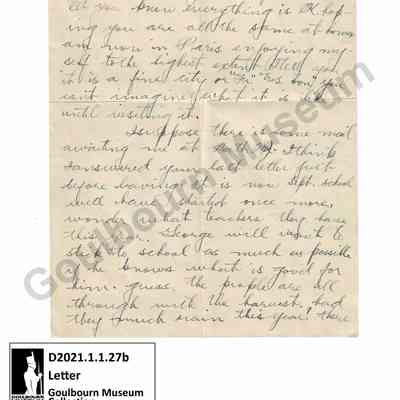 let you know everything is OK hop-
ing you are all the same at home
am now in Paris enjoying my-
self to the highest extent. Well yes,
it is a fine city or "Tres bon" you
isn't imagine what it is like
until visiting it.
I suppose there is some mail
awaiting me at I think
I answered your last letter just
before leaving. It is now Sept. school
will have started once more,
wonder what teachers they have
this George will want to
stick to school as much as possible
if he knows what is good for
him. guess, the people are all
through with the harvest, had
they much rain this year? there
Goulbourn Museum
D2021.1.1.27b
Letter
Goulbourn Museum
Collection
GOULBOURN